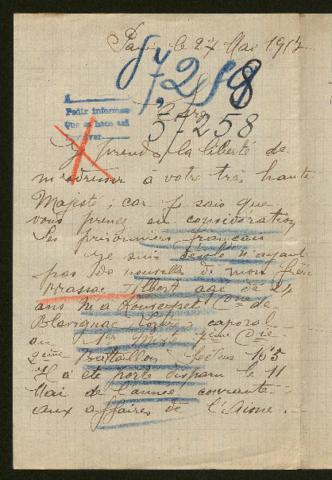 Paris le 27 Mai 1917
57,258
57258
A
Pedir informes
Que se hace así
Je prends la liberté de
m'adresser à votre très haute
Majesté ; car je sais que
vous prenez en considération
les prisonniers français
Je suis désolé n'ayant
pas de nouvelle de mon frère
Brassac Albert age de 24
ans né a
de
caporal
au
Bataillon secteur 165
Il a été porté disparu le 11
Mai de l'année courante
aux affaires de l'Aisne.